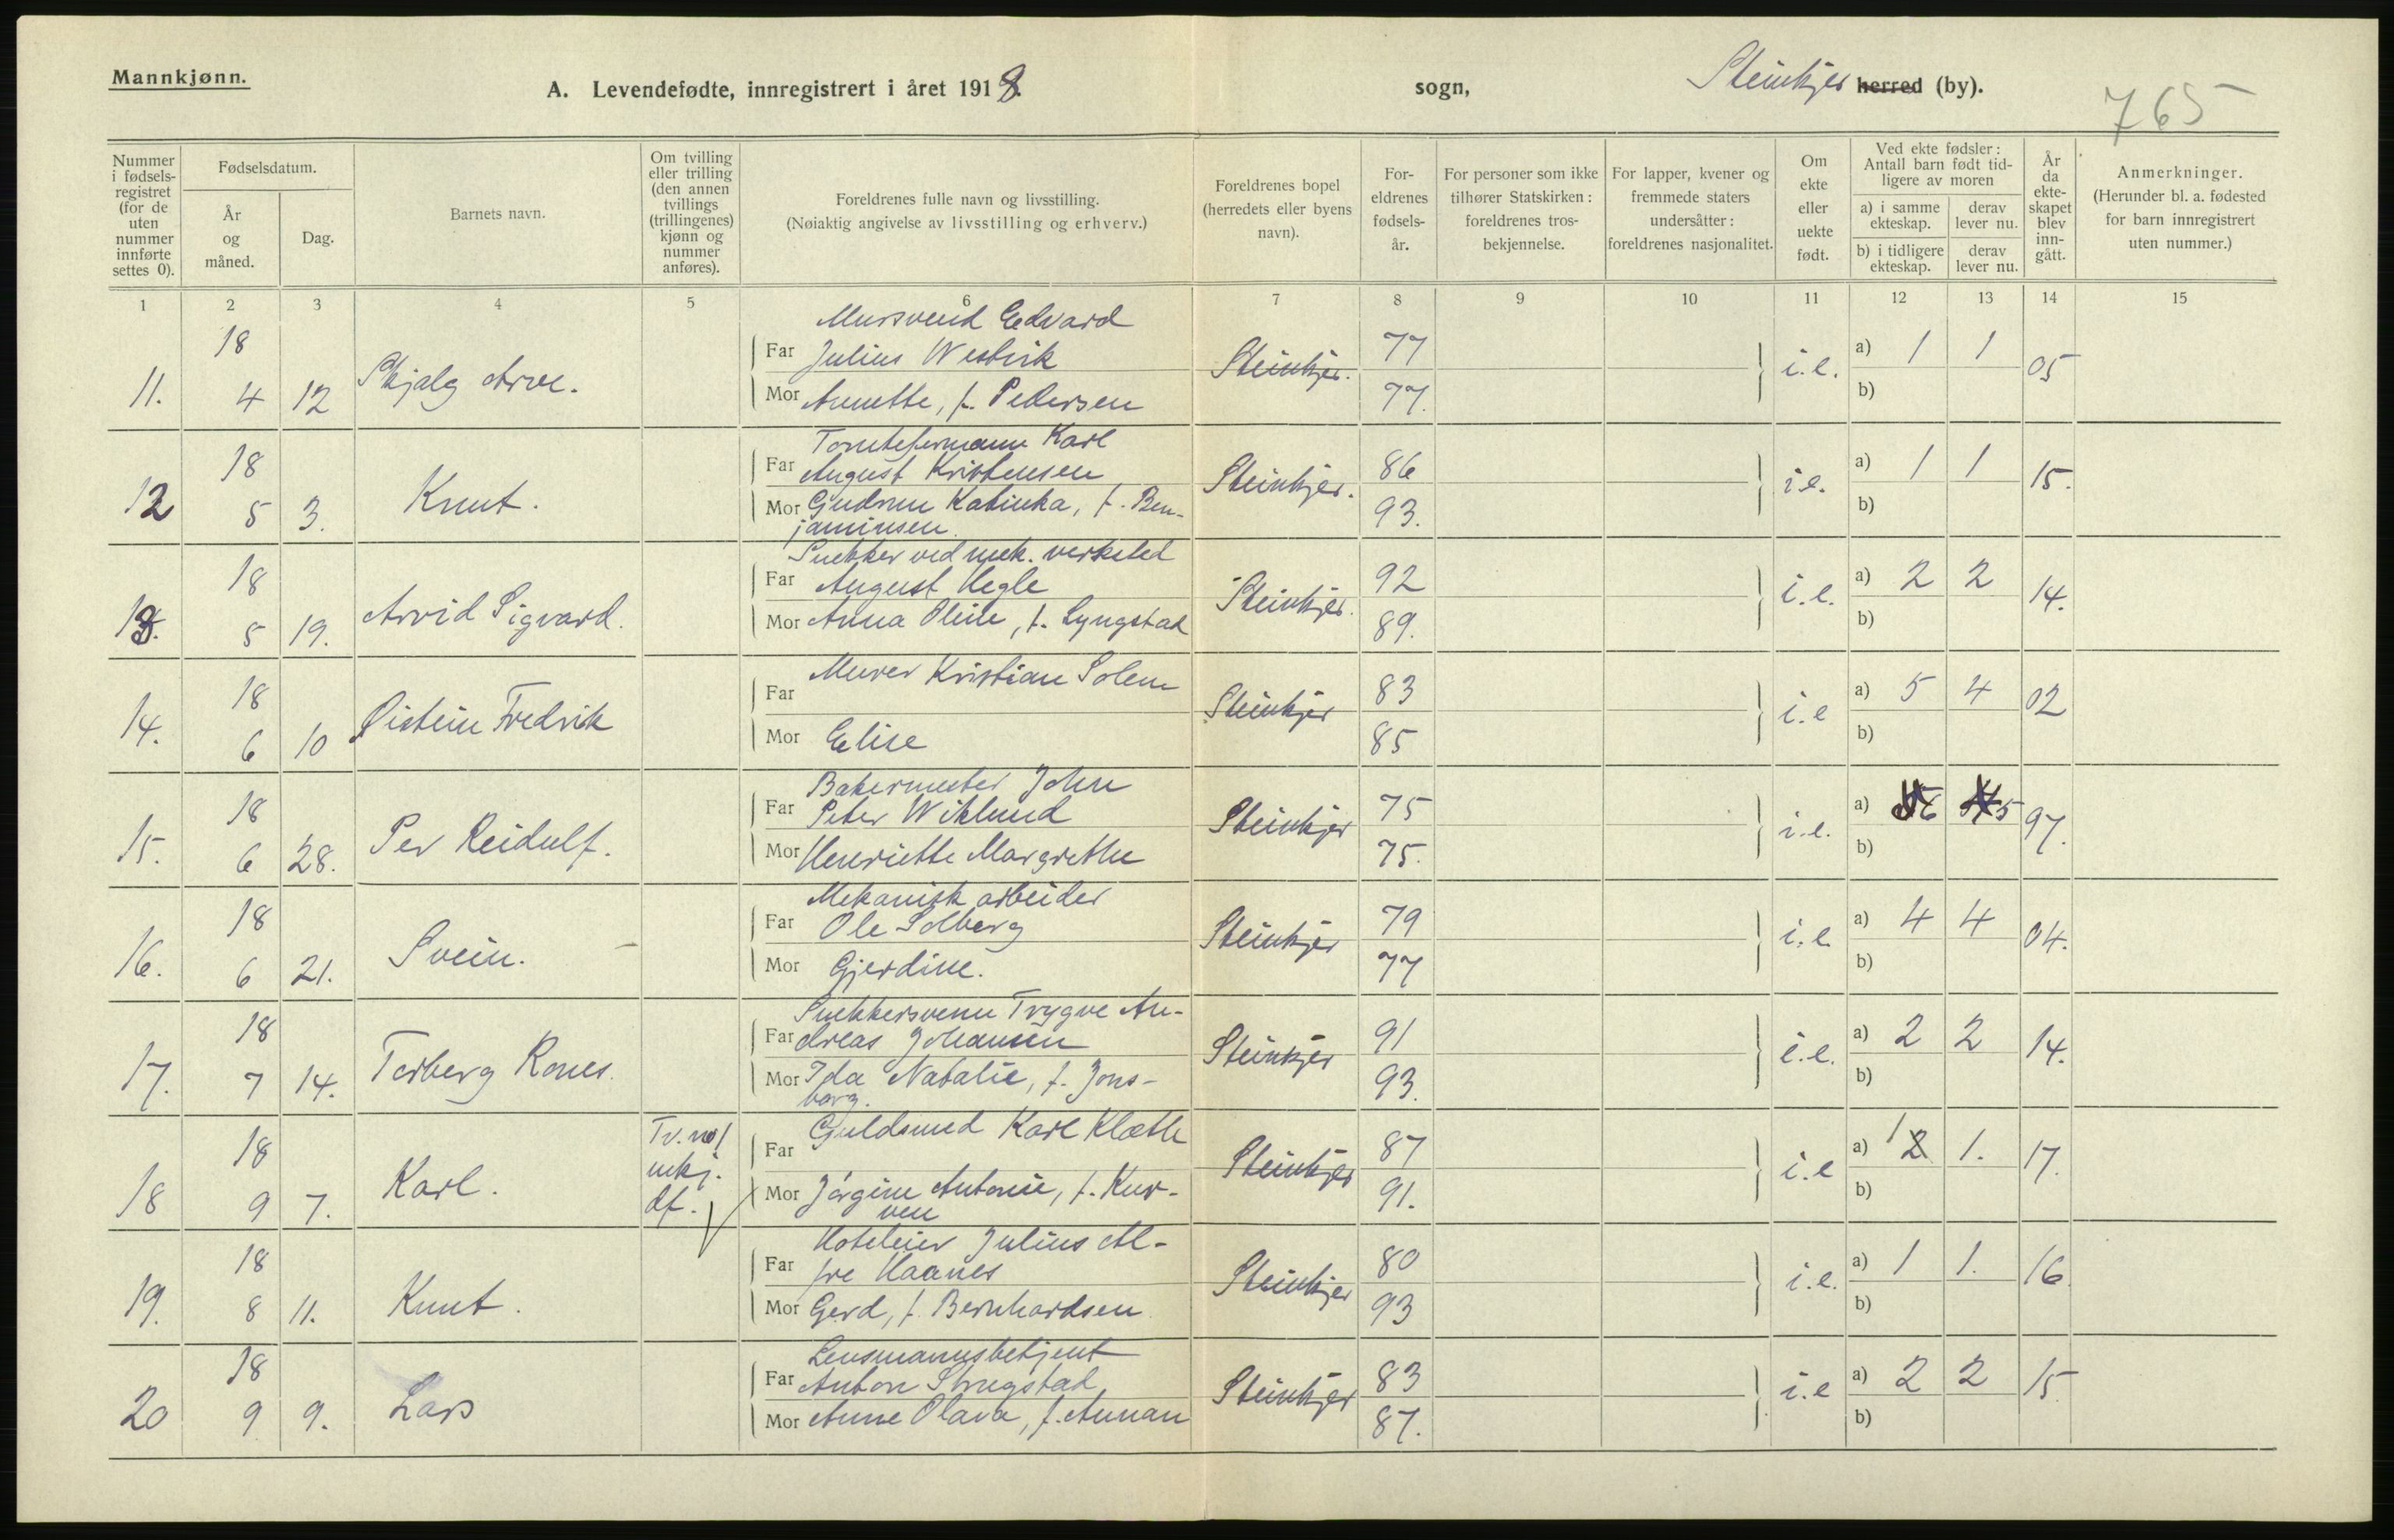 Mannkjønn.
A. Levendefødte, innregistrert i året 1918.
sogn,
Steinkjer herred (by).
765
Nummer i fødsels-registret (for de uten nummer innførte settes 0).
Fødselsdatum.
År og måned.
Dag.
Barnets navn.
Om tvilling eller trilling (den annen tvillings (trillingenes) kjønn og nummer anføres).
Foreldrenes fulle navn og livsstilling.
(Nøiaktig angivelse av livsstilling og erhverv.)
Foreldrenes bopel (herredets eller byens navn).
For-eldrenes fødsels-år.
For personer som ikke tilhører Statskirken: foreldrenes tros-bekjennelse.
For lapper, kvener og fremmede staters undersåtter: foreldrenes nasjonalitet.
Om ekte eller uekte født.
Ved ekte fødsler: Antall barn født tid-ligere av moren
a) i samme ekteskap.
derav lever nu.
b) i tidligere ekteskap.
derav lever nu.
År da ekte-skapet blev inn-gått.
Anmerkninger.
(Herunder bl. a. fødested for barn innregistrert uten nummer.)
1 2 3 4 5 6 7 8 9 10 11 12 13 14 15
11. 18 4 12 Skjalg Arve.
Mursvend Edvard
Far Julius Westvik
Mor Annette, f. Pedersen
Steinkjer. 77 77. i.e. a) 1 1 b) 05
12 18 5 3. Knut.
Tomteformann Karl
Far August Kristensen
Mor Gudrun Katinka, f. Ben-
jaminsen.
Steinkjer. 86 93. i.e. a) 1 1 b) 15.
13. 18 5 19. Arvid Sigvard.
Snekker ved mek. verksted
Far August Hegle
Mor Anna Oline, f. Lyngstad
Steinkjer. 92 89. i.e. a) 2 2 b) 14.
14. 18 6 10 Øistein Fredrik
Murer Kristian Solem
Far
Mor Elise
Steinkjer 83 85 i.e a) 5 4 b) 02
15. 18 6 28. Per Reidulf.
Bakermester John
Far Peter Wiklund
Mor Henriette Margrethe
Steinkjer 75 75. i.e. a) 6 5 b) 97.
16. 18 6 21. Svein.
Mekanisk arbeider
Far Ole Solberg
Mor Gjerdine.
Steinkjer 79 77 i.e. a) 4 4 b) 04.
17. 18 7 14. Torberg Rones.
Snekkersvenn Trygve An-
Far dreas Johansen
Mor Ida Natalie, f. Jons-
borg.
Steinkjer 91 93. i.e. a) 2 2 b) 14.
18 18 9 7. Karl.
Tv. no 1
mkj.
df.
Guldsmed Karl Klæth
Far
Mor Jørgine Antonie, f. Kur-
ven
Steinkjer 87 91. i.e a) 1 2 1. b) 17.
19. 18 8 11. Knut.
Hoteleier Julius Al-
Far fre Haanes
Mor Gerd, f. Bernhardsen.
Steinkjer 80 93 i.e. a) 1 1. b) 16.
20 18 9 9. Lars
Lensmannsbetjent
Far Anton Strugstad
Mor Anne Olava, f. Aunan
Steinkjer 83 87. i.e a) 2 2 b) 15